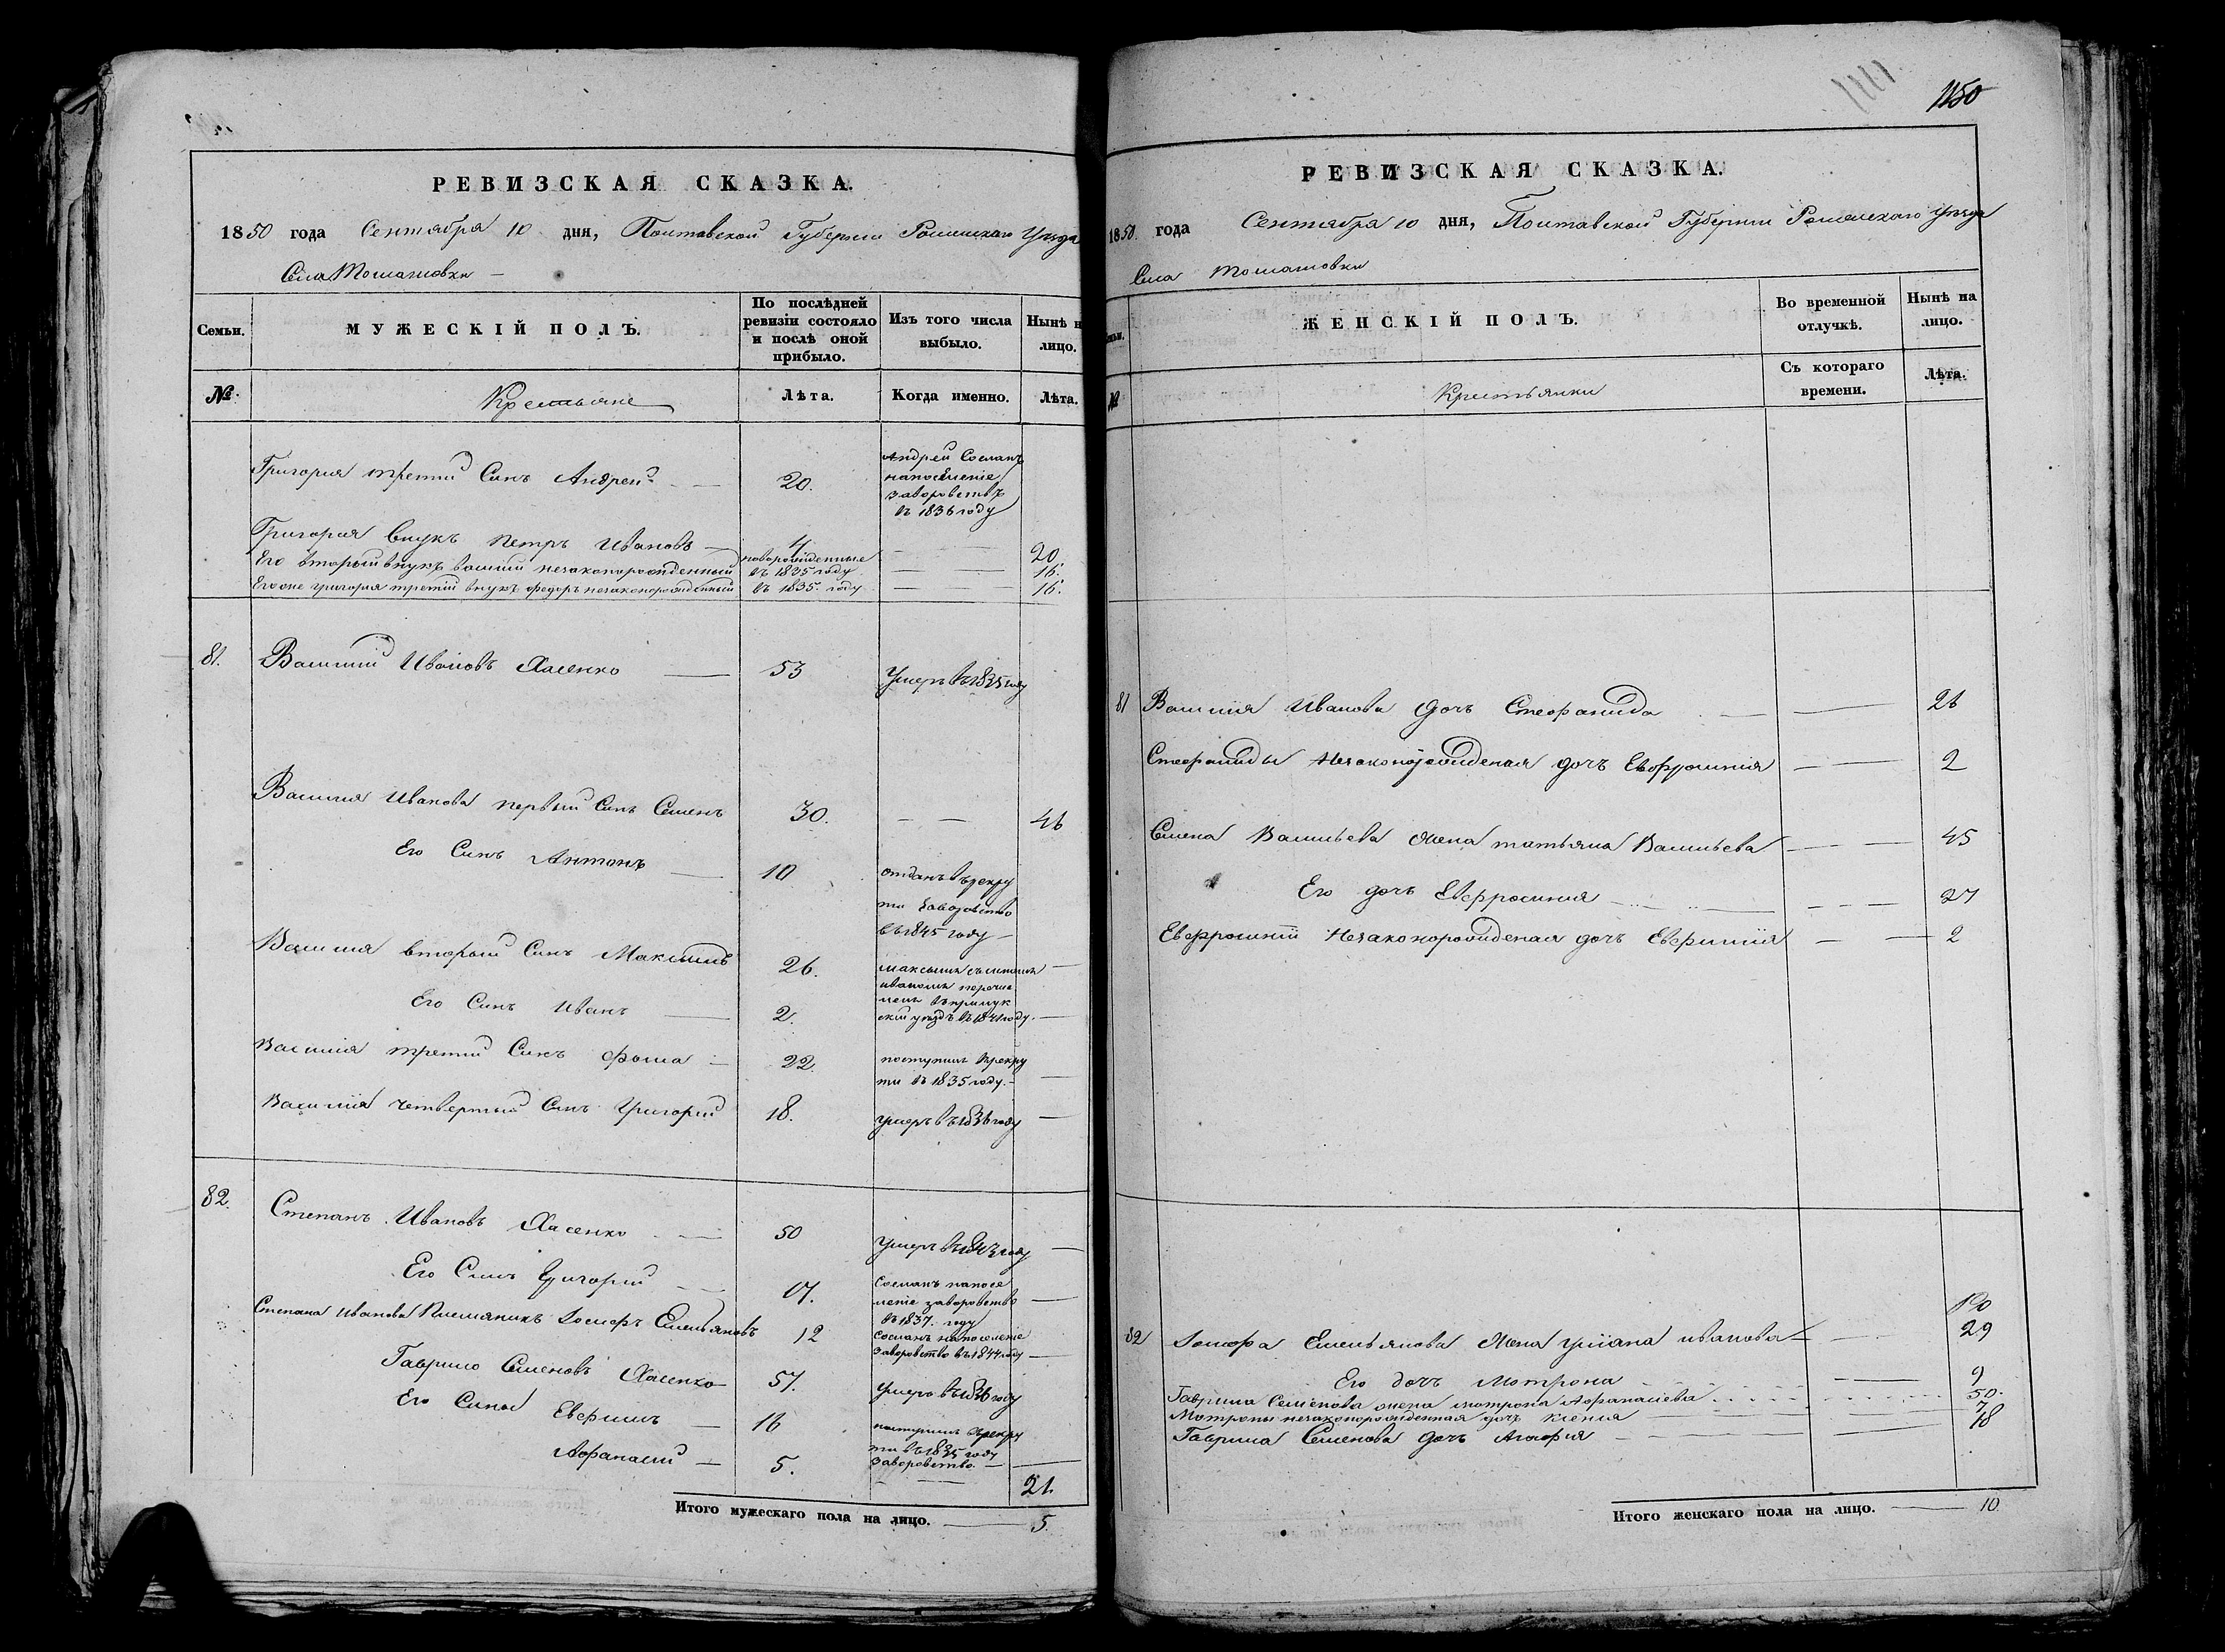 РЕВИЗСКАЯ СКАЗКА.
1850 года Сентября 10 дня, Полтавской Губернии Роменскаго Уезда
Села Томашовки
Семьи.
МУЖЕСКІЙ ПОЛЪ.
По послѣдней ревизіи состояло и послѣ оной прибыло.
Изъ того числа выбыло.
Нынѣ на лицо.
№
Крестьяне
Лѣта.
Когда именно.
Лѣта.
Григорія третій Сынъ Андрей 20. Андрей Сосланъ
на поселеніе
за воровство
въ 1836 году
Григорія внукъ Петръ Ивановъ 4 20.
Его вторый внукъ Василій незаконорожденный новорожденные въ 1835 году 16.
Его оне Григорія третій внукъ Федоръ незаконорожденный въ 1835 году 16.
81. Василій Ивановъ Хасенко 53 Умеръ въ 1835 году
Василія Иванова первый Сынъ Семенъ 30. 46
Его Сынъ Антонъ 10 отданъ въ рекру
ти за воровство
въ 1845 году
Василія вторый Сынъ Максимъ 26. Максимъ съ сыномъ
Иваномъ перечис
ленъ въ Прилук
Его Сынъ Иванъ 2. скій уездъ въ 1841 году.
Василія третій Сынъ Фома 22. поступилъ в рекру
ти въ 1835 году.
Василія четвертый Сынъ Григорій 18. умеръ въ 1836 году
82. Степанъ Ивановъ Хасенко 50 Умеръ въ 1843 году
Его Сынъ Григорій 17. Сосланъ на посе
леніе за воровство
въ 1837 году
Степана Иванова Племяникъ Іосифъ Емельяновъ 12 Сосланъ на поселеніе
за воровство въ 1844 году
Гаврило Семеновъ Хасенко 57. Умеръ въ 1836 году
Его Сыны Ефимъ 16 поступилъ в рекру
ти въ 1835 году
за воровство.
Афанасій 5. 21.
Итого мужескаго пола на лицо. 5.
1150
РЕВИЗСКАЯ СКАЗКА.
1850 года Сентября 10 дня, Полтавской Губерніи Роменскаго Уезда
Села Томашовки
ЖЕНСКІЙ ПОЛЪ.
Во временной отлучкѣ.
Нынѣ на лицо.
№
Крестьянки
Съ котораго времени.
Лѣта.
81 Василія Иванова дочь Стефанида 26
Стефаниды Незаконорожденая дочь Евфросинія 2
Семена Васильева жена татьяна Васильева 45
Его дочь Евфросинія 27
Евфросиніи Незаконорожденая дочь Евфимія 2
82 Іосифа Емельянова жена Уліана Иванова 29
Его дочь Мотрона 9
Гаврила Семенова жена мотрона Афанасіева 50.
Мотроны незаконорожденная дочь Ксенія 7
Гаврила Семенова дочь Агафія 18
Итого женскаго пола на лицо. 10